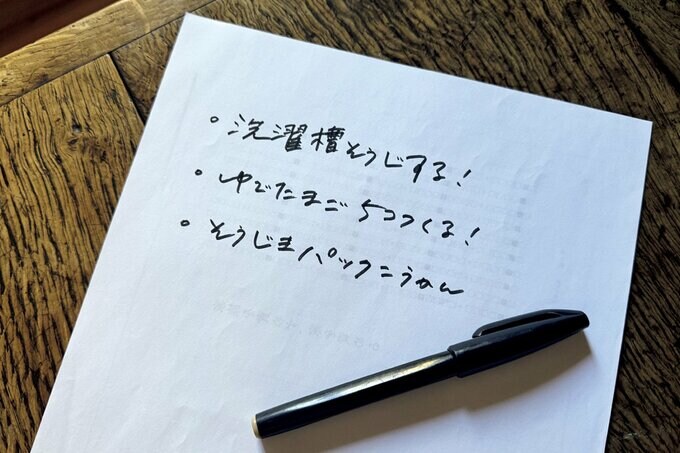 • 洗濯槽そうじする！
• ゆでたまご5コつくる！
• そうじきパックこうかん